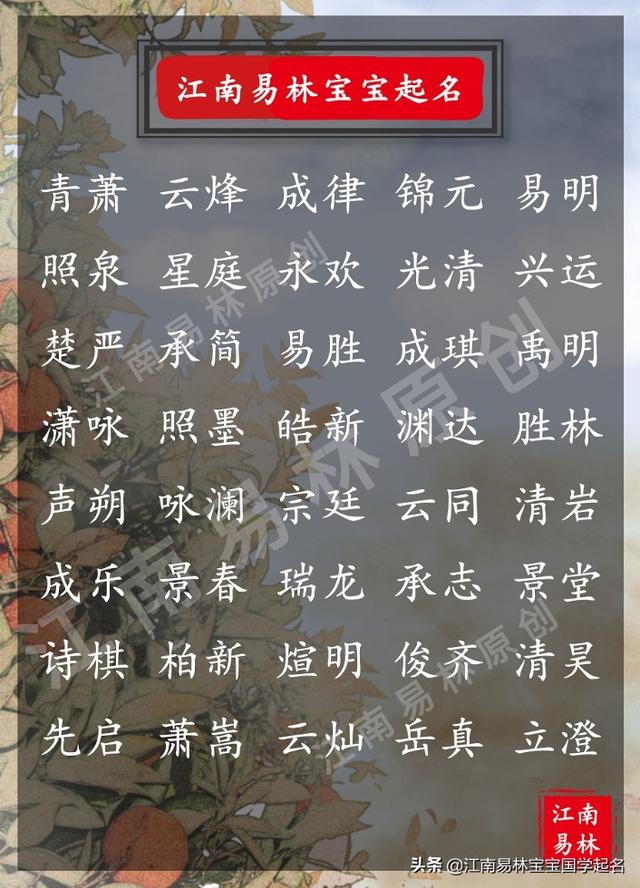 江南易林宝宝起名
青萧 云烽 成律 锦元 易明
照泉 星庭 永欢 光清 兴运
楚严 承简 易胜 成琪 禹明
潇咏 照墨 皓新 渊达 胜林
声朔 咏澜 宗廷 云同 清岩
成乐 景春 瑞龙 承志 景堂
诗棋 柏新 煊明 俊齐 清昊
先启 萧嵩 云灿 岳真 立澄
江南易林原创
江南易林原创
江南易林原创
江南
易林
头条 @江南易林宝宝国学起名